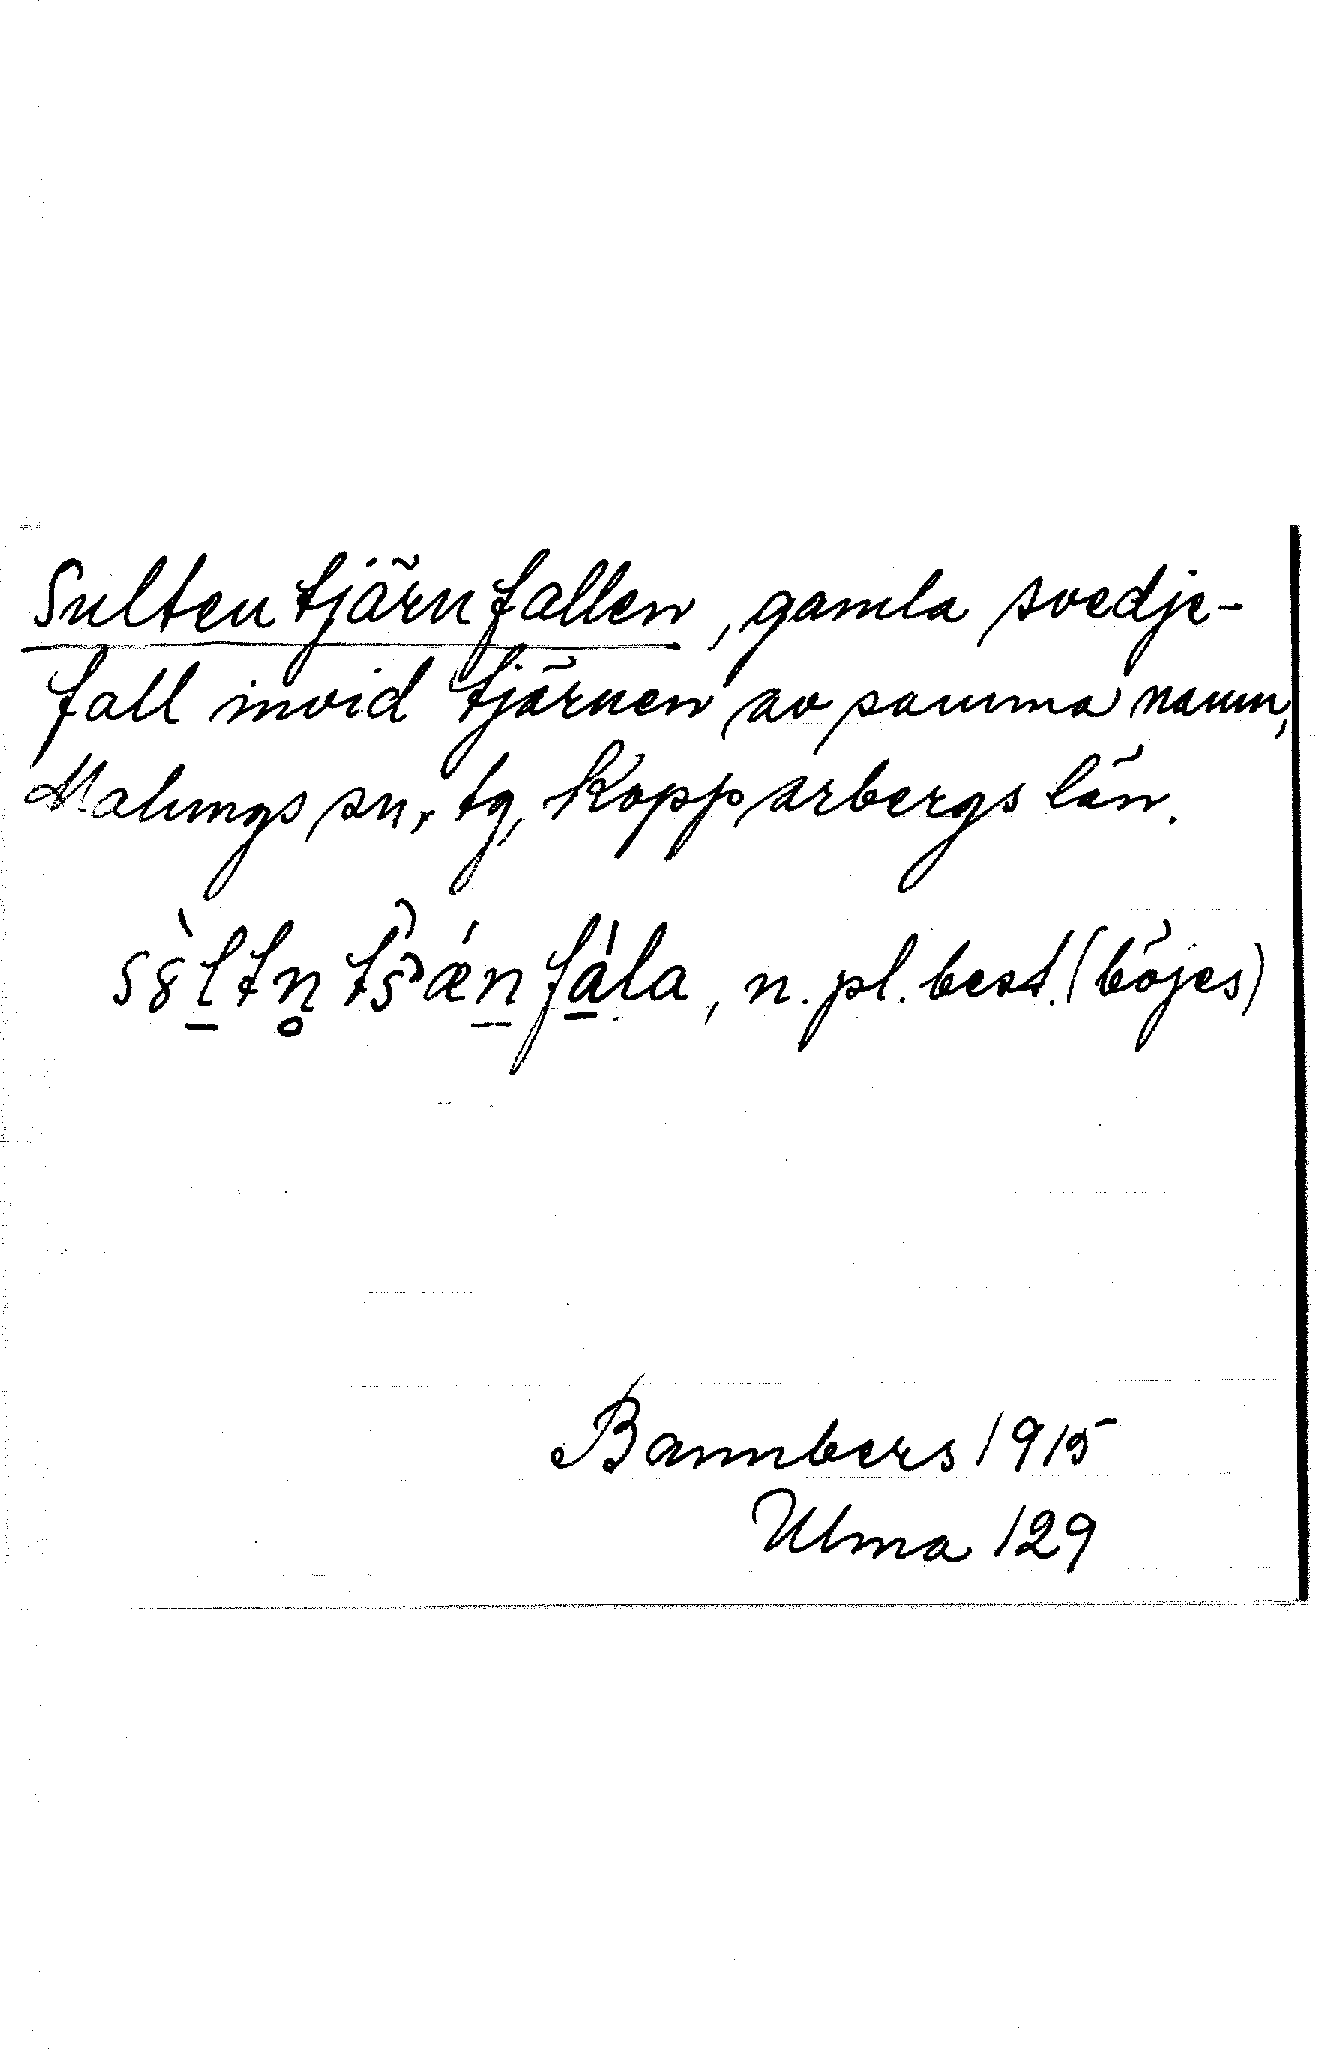 Sultentjärnfallen, gamla svedje-
fall invid tjärnen av samma namn,
Malungs sn, tg, Kopparbergs län.
n. pl. best. (böjes)
Bannbers 1915
Ulma 129